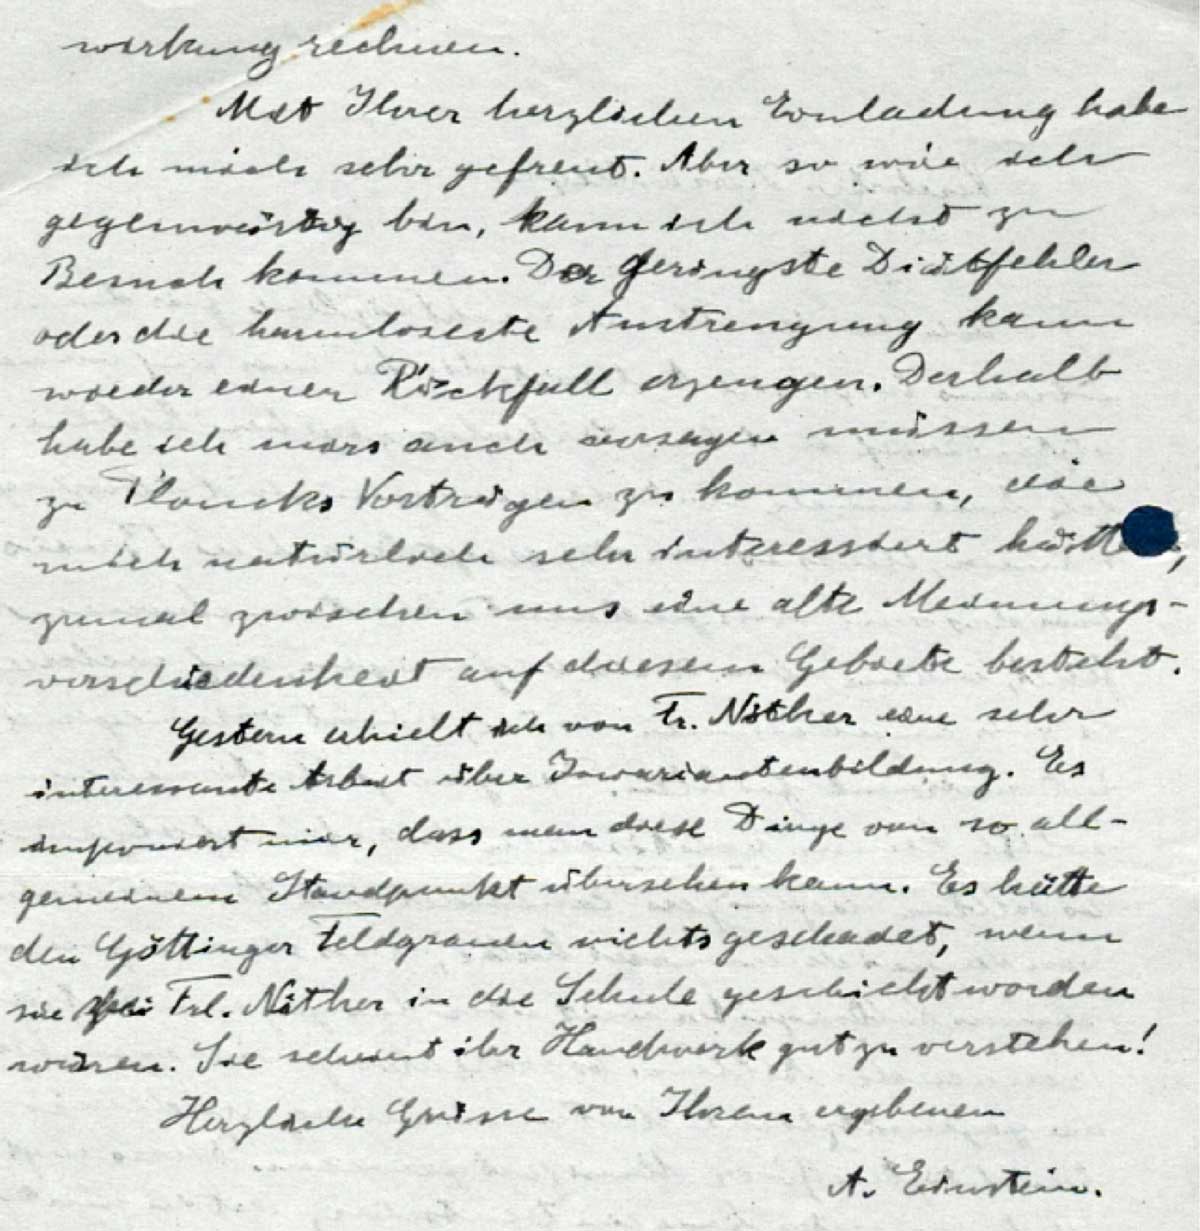 wirkung rechnen.
Mit Ihrer herzlichen Einladung habe
ich mich sehr gefreut. Aber so wie ich
gegenwärtig bin, kann ich nicht zu
Besuch kommen. Der geringste Diätfehler
oder die harmloseste Anstrengung kann
wieder einen Rückfall erzeugen. Deshalb
habe ich mirs auch versagen müssen
zu Plancks Vorträgen zu kommen, die
mich natürlich sehr interessiert hätten,
zumal zwischen uns eine alte Meinungs-
verschiedenheit auf diesem Gebiete besteht.
Gestern erhielt ich von Fr. Nöther eine sehr
interessante Arbeit über Invariantenbildung. Es
imponiert mir, dass man diese Dinge von so all-
gemeinem Standpunkt übersehen kann. Es hätte
den Göttinger Feldgrauen nichts geschadet, wenn
sie bei Frl. Nöther in die Schule geschickt worden
wären. Sie scheint ihr Handwerk gut zu verstehen!
Herzliche Grüsse von Ihrem ergebenen
A. Einstein.